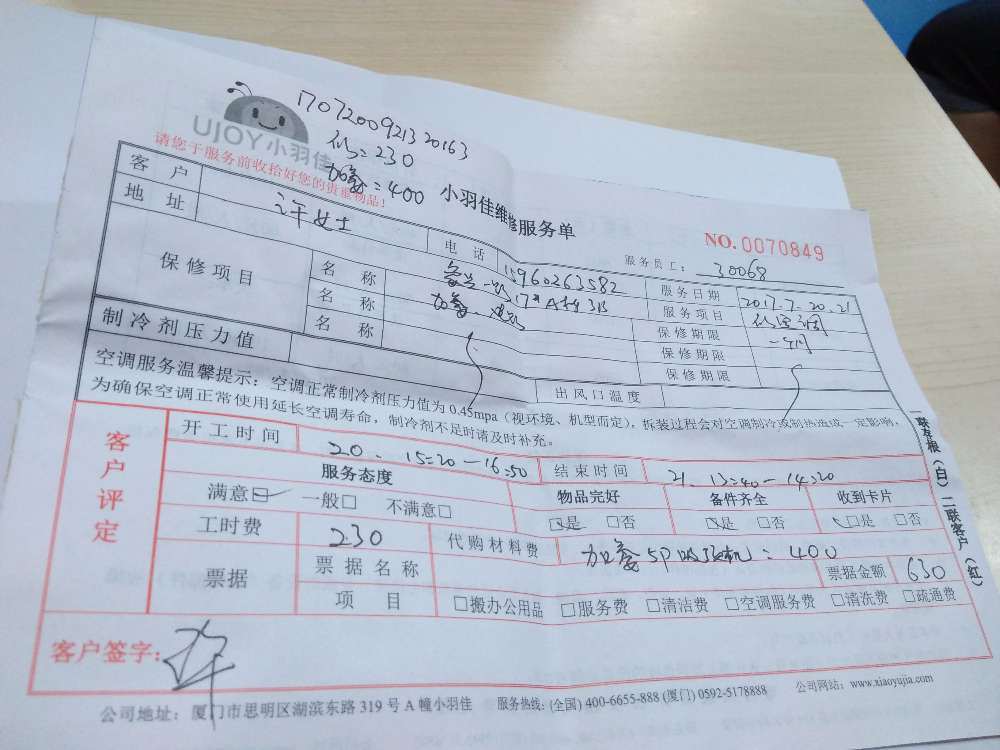 17072009213 20163
UJOY小羽佳
=230
=400
请您于服务前收拾好您的贵重物品!
小羽佳维修服务单
NO.0070849
服务员工: 30068
客户 许女士 电话 15960263582 服务日期 2017.7.20.21
地址 服务项目
保修项目 名称 保修期限
名称 保修期限
名称 保修期限
制冷剂压力值 出风口温度
空调服务温馨提示: 空调正常制冷剂压力值为 0.45mpa (视环境、机型而定), 拆装过程会对空调制冷或制热造成一定影响,
为确保空调正常使用延长空调寿命, 制冷剂不足时请及时补充。
客户评定
开工时间 20. 15:20-16:50 结束时间 21. 13:40-14:20
服务态度 物品完好 备件齐全 收到卡片
满意☑ 一般□ 不满意□ ☑是 □否 ☑是 □否 ☑是 □否
工时费 230 代购材料费 5P =400
票据 票据名称 票据金额 630
项目 □搬办公用品 □服务费 □清洁费 □空调服务费 □清洗费 □疏通费
客户签字: 许
一联存根(白) 二联客户(红)
公司地址: 厦门市思明区湖滨东路 319 号 A 幢小羽佳 服务热线: (全国) 400-6655-888 (厦门) 0592-5178888 公司网站: www.xiaoyujia.com